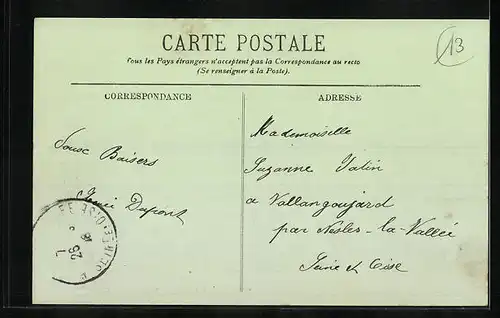 CARTE POSTALE
Tous les Pays étrangers n'acceptent pas la Correspondance au recto
(Se renseigner à la Poste).
CORRESPONDANCE
ADRESSE
13
Baisers
Dupont
Mademoiselle
Suzanne
a Vallangoujard
par Nesles-la-Vallée
Seine et Oise
SEINE-ET-OISE